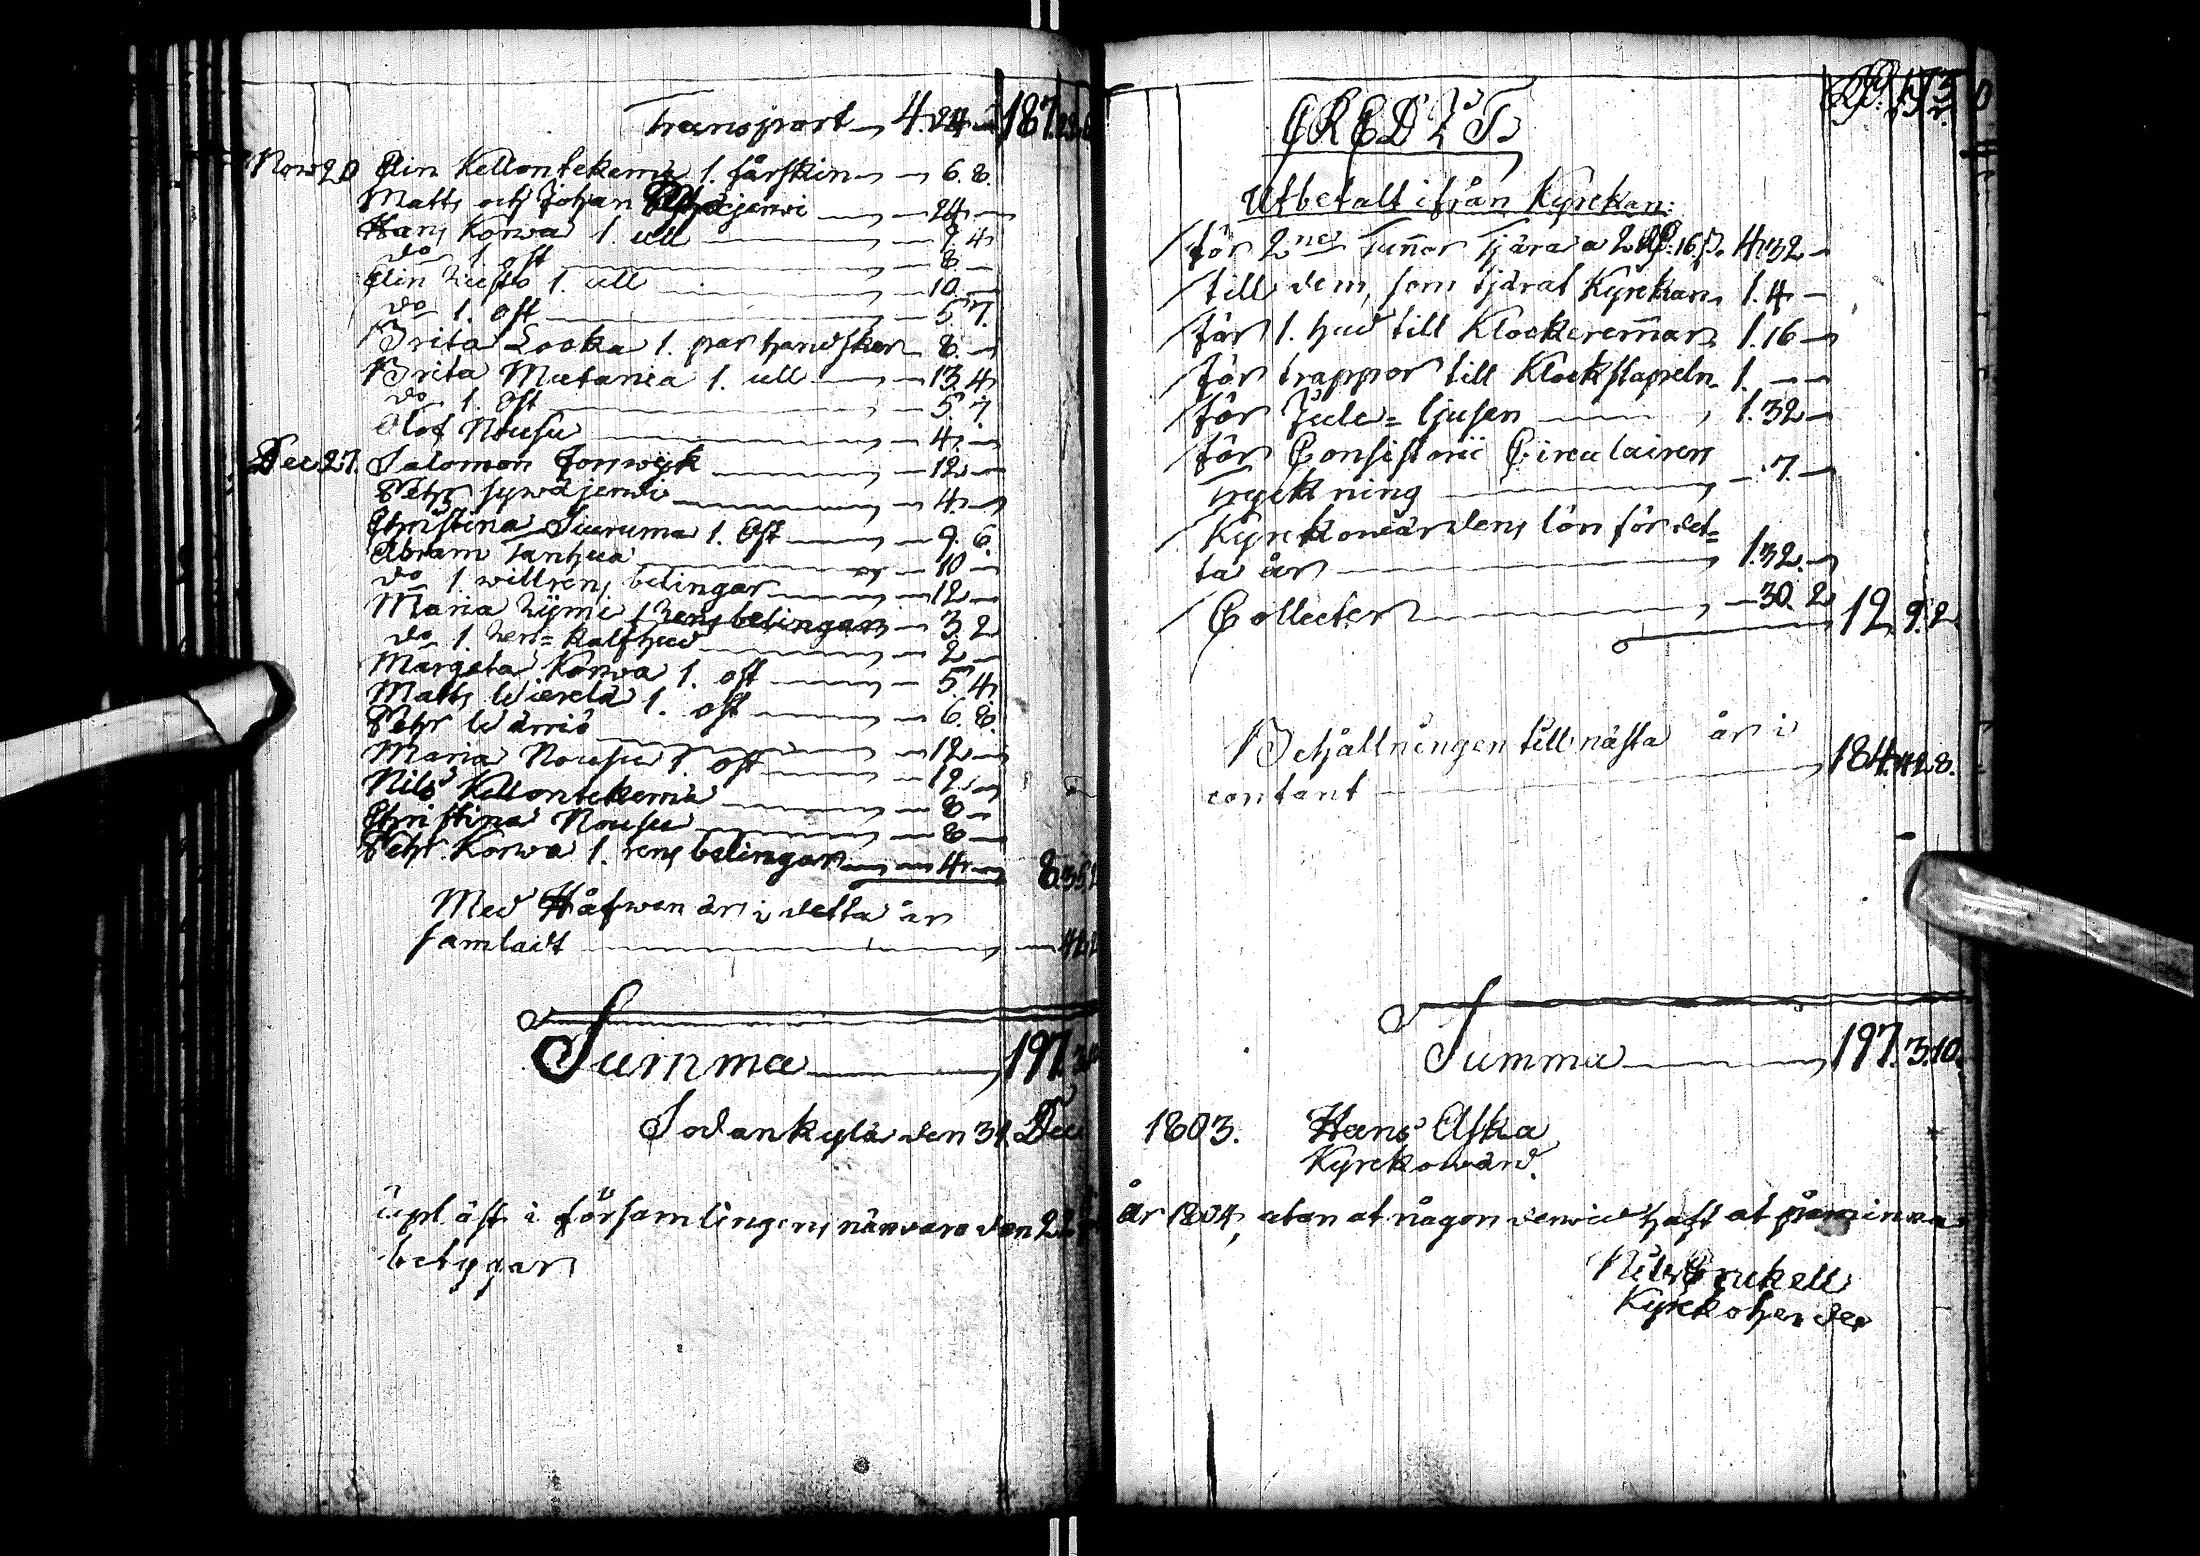 Transport 4. 24 187.
Nov 20 Elin Kellontekemä 1. fårskin 6. 8.
Matts och Johan jerwi 24
Hans Korwa 1. ull 9. 4
do 1. ost 8.
Elin 1. ull 10.
do 1. ost 5. 7.
Brita Looka 1. par handskar 8.
Brita Mutania 1. ull 13. 4
do 1. Ost 5. 7
Olof Nousu 4.
Dec 27. Salomon Forswijk 12
Pehr sywäjerwi 4.
Christina Siuruma 1. Ost 9. 6.
Abram Tanhua 10
do 1. willrens belingar 12
Maria Lijmi 1 rens belingar 3. 2
do 1. ren=kalfhud 2
Margeta Korwa 1. ost 5. 4
Matts Wierelä 1. ost 6. 8.
Pehr Wärriö 12
Maria Nousu 1. ost 12.
Nils Kellontekemä 8
Christina Nousu 8
Pehr Korwa 1. rens belingar 4 8.35.
Med Håfwen är i detta år
samladt
Summa 197.
Sodankylä den 31 Dec
upläst i församlingens närvaro den 22
betygar
CREDIT
Utbetalt ifrån Kyrckan:
för 2ne Tunnor Tjära a 2 Rd. 16 s. 4. 32
till dem, som tjärat Kyrckan 1. 4
för 1. hud till Klockremmar 1. 16
för trappor till Klockstapeln 1.
för Jule=ljusen 1. 32
för Consistorii Circulairers
Tryckning 7.
Kyrckowärdens lön för det=
ta år 1. 32.
Collecter 30. 2 12. 9. 2
Behållningen till nästa år i
contant 184. 42. 8.
Summa 197. 3. 10.
1803. Hans Aska
Kyrckowärd.
År 1804, utan at någon derwid haft at påminna
Nils Fruckell
Kyrckoherde